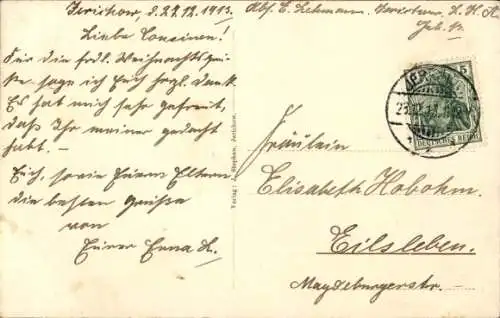 Jerichow, d. 27.12.1913.
Liebe Cousinen!
Für die frdl. Weihnachtsgrü-
ße sage ich Euch hrzl. Dank.
Es hat mich sehr gefreut,
daß Ihr meiner gedacht
habt. —
Euch, sowie Euren Eltern
die besten Grüße
von
Eurer Erna L.
Abs. E. Lehmann, Jerichow,
Fräulein
Elisabeth Hobohm.
Eilsleben.
Magdeburgerstr.
Verlag: Stephan, Jerichow.
5
DEUTSCHES REICH